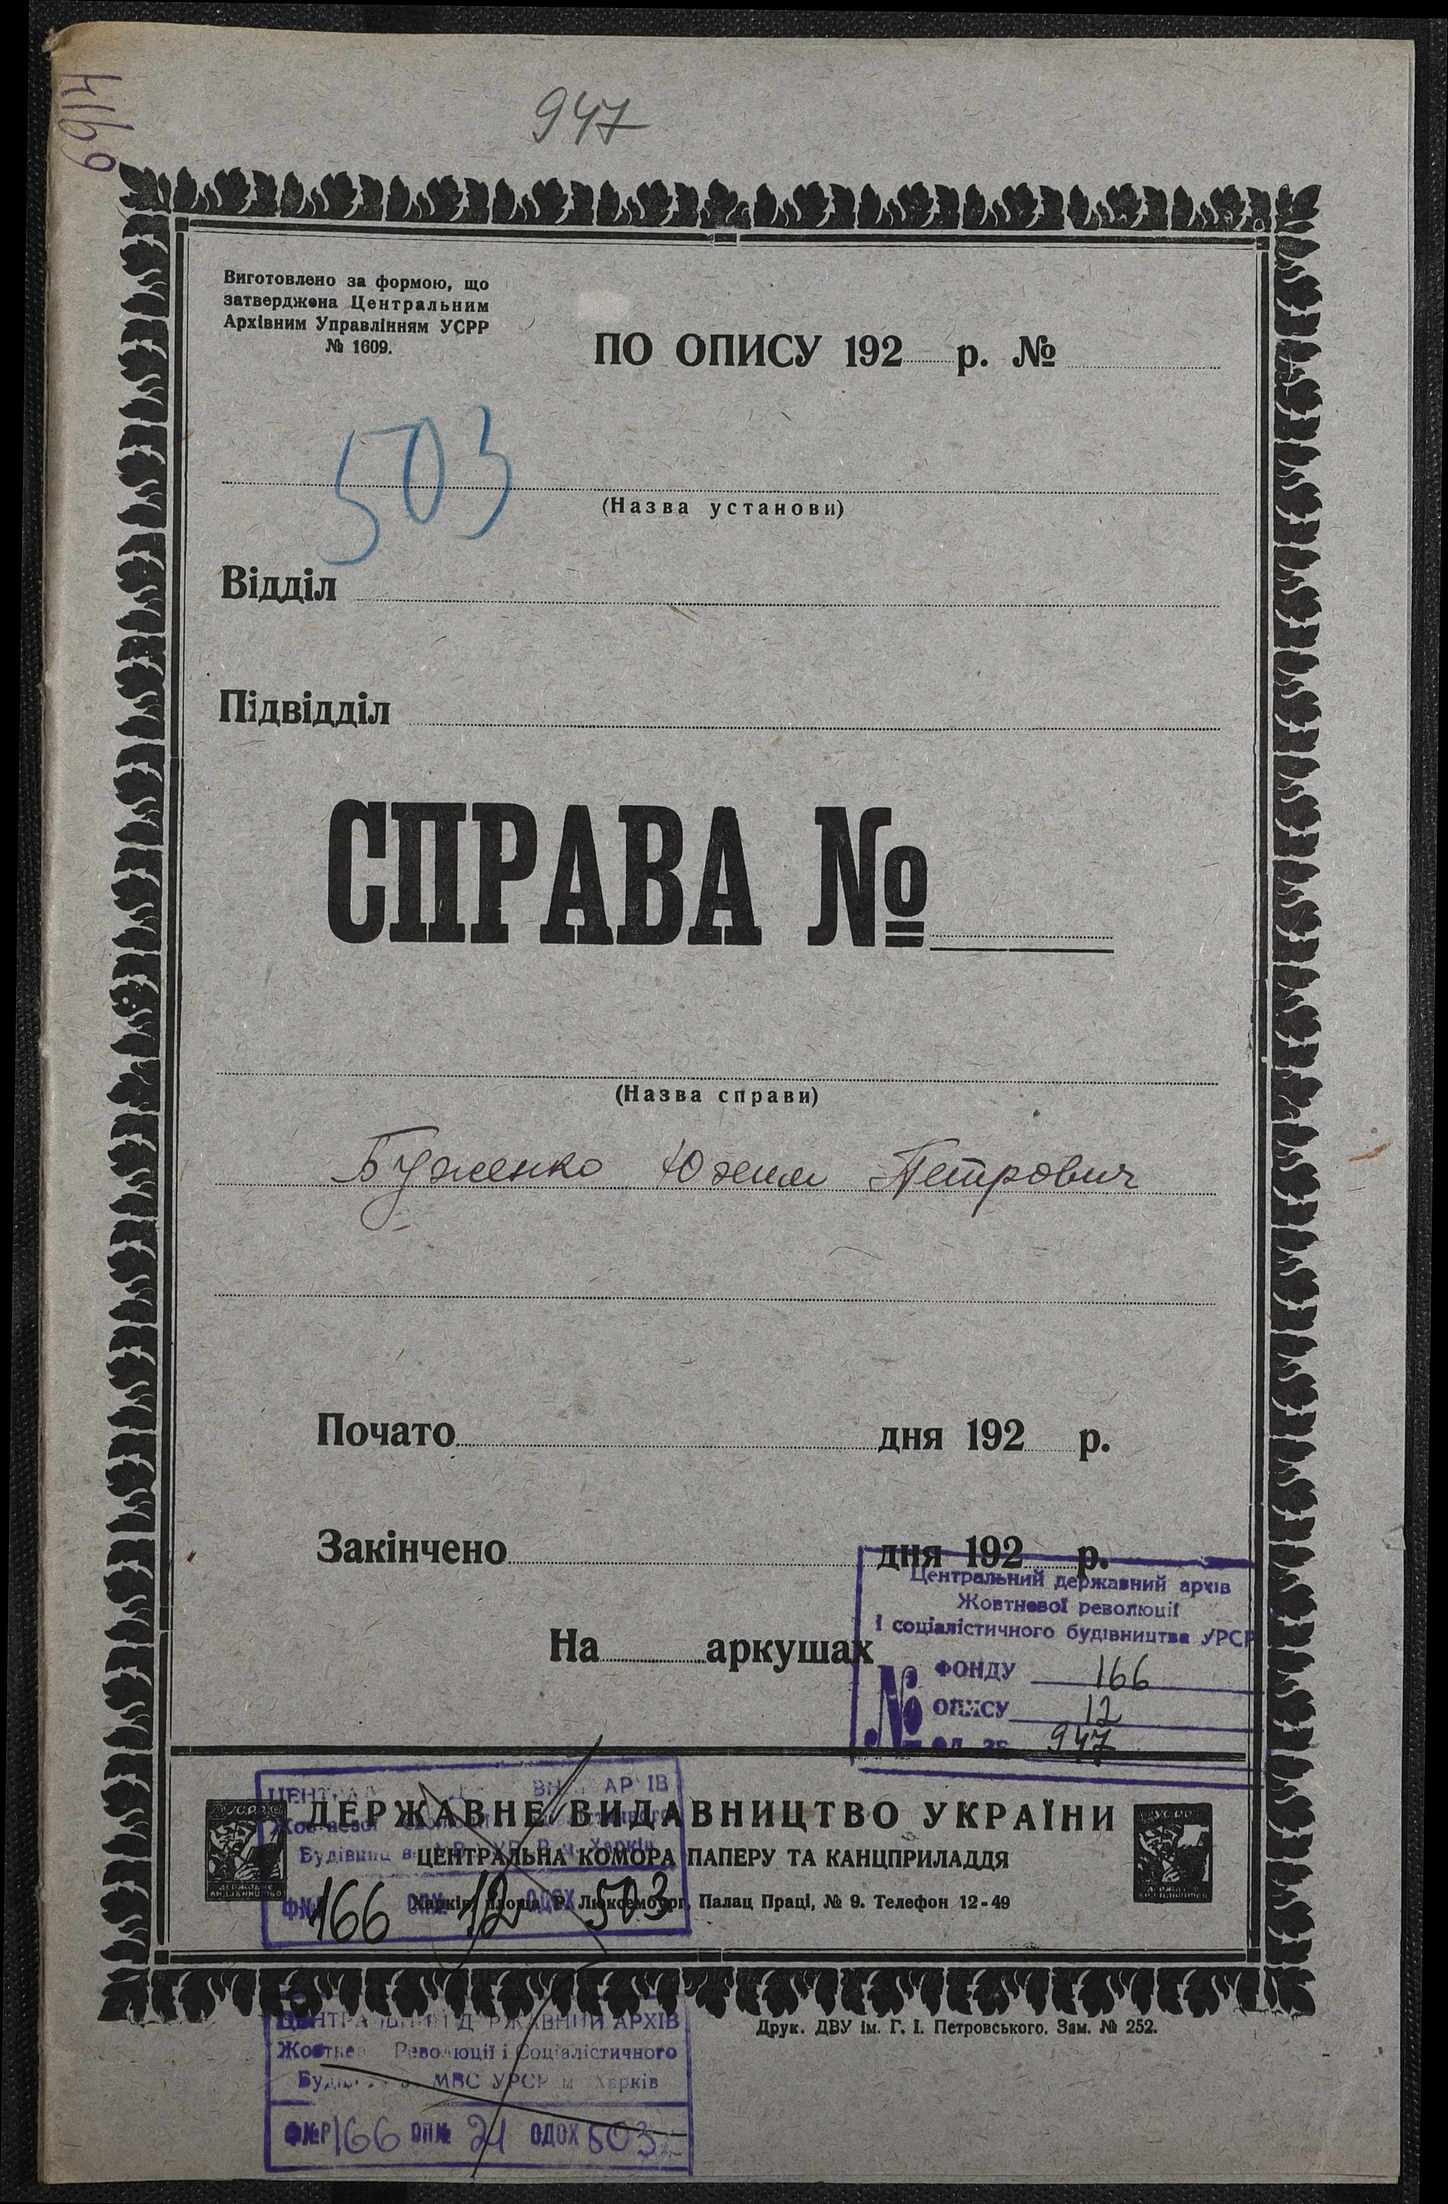 6914
947
Виготовлено за формою, що
затверджена Центральним
Архівним Управлінням УСРР
№ 1609.
ПО ОПИСУ 192 р. №
503
(Назва установи)
Відділ
Підвідділ
СПРАВА №
(Назва справи)
Бужленко Юхим Петрович
Почато дня 192 р.
Закінчено дня 192 р.
На аркушах
Центральний державний архів
Жовтневої революції
і соціалістичного будівництва УРСР
№ ФОНДУ 166
ОПИСУ 12
од. зб. 947
ДЕРЖАВНЕ ВИДАВНИЦТВО УКРАЇНИ
ЦЕНТРАЛЬНА КОМОРА ПАПЕРУ ТА КАНЦПРИЛАДДЯ
Харків, площа Р. Люксембург, Палац Праці, № 9. Телефон 12-49
166 12 503
Друк. ДВУ ім. Г. І. Петровського. Зам. № 252.
ЦЕНТРАЛЬНИЙ ДЕРЖАВНИЙ АРХІВ
Революції і Соціалістичного
МВС УРСР м Харків
Ф№Р 166 ОП№ 21 ОДОХ 503